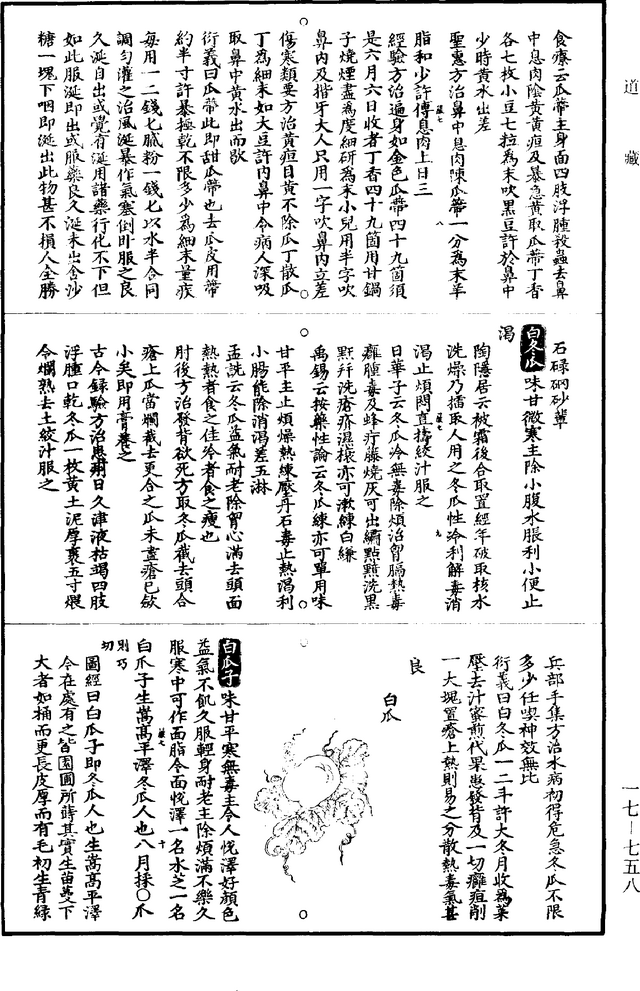 道藏
食療云瓜蒂主身面四肢浮腫殺蟲去鼻
中息肉陰黃黃疸及暴急黃取瓜蒂丁香
各七枚小豆七粒為末吹黑豆許於鼻中
少時黃水出差
聖惠方治鼻中息肉陳瓜蒂一分為末羊
脂和少許傅息肉上日三
經驗方治遍身如金色瓜蒂四十九箇須
是六月六日收者丁香四十九箇用甘鍋
子燒煙盡為度細研為末小兒用半字吹
鼻內及揩牙大人只用一字吹鼻內立差
傷寒類要方治黃疸目黃不除瓜丁散瓜
丁為細末如大豆許內鼻中令病人深吸
取鼻中黃水出而歇
衍義曰瓜蒂此即甜瓜蒂也去瓜皮用蒂
約半寸許暴極乾不限多少為細末量疾
每用一二錢匕膩粉一錢匕以水半合同
調勻灌之治風涎暴作氣塞倒卧服之良
久涎自出或覺有涎用諸藥行化不下但
如此服涎即出或服藥良久涎未出含沙
糖一塊下咽即涎出此物甚不損人全勝
石碌硇砂輩
白冬瓜 味甘微寒主除小腹水脹利小便止
渴
陶隱居云被霜後合取置經年破取核水
洗燥乃擂取人用之冬瓜性冷利解毒消
渴止煩悶直擣絞汁服之
日華子云冬瓜冷無毒除煩治胷膈熱毒
癰腫毒及蜂疔藤燒灰可出繡點黵洗黑
䵟幷洗瘡疥濕𧏾亦可漱練白縑
禹錫云按藥性論云冬瓜練亦可單用味
甘平主止煩燥熱練壓丹石毒止熱渴利
小腸能除消渴差五淋
孟詵云冬瓜益氣耐老除胷心滿去頭面
熱熱者食之佳冷者食之瘦也
肘後方治發背欲死方取冬瓜截去頭合
瘡上瓜當爛截去更合之瓜未盡瘡已斂
小矣即用膏養之
古今録驗方治患痢日久津液枯竭四肢
浮腫口乾冬瓜一枚黃土泥厚裹五寸煨
令爛熟去土絞汁服之
兵部手集方治水病初得危急冬瓜不限
多少任喫神效無比
衍義曰白冬瓜一二斗許大冬月收為菜
壓去汁蜜煎代果患發背及一切癰疽削
一大塊置瘡上熱則易之分散熱毒氣甚
良
白瓜
白瓜子 味甘平寒無毒主令人悅澤好顏色
益氣不飢久服輕身耐老主除煩滿不樂久
服寒中可作面脂令面悅澤一名水芝一名
白爪子生嵩高平澤冬瓜人也八月採○爪
則巧
切
圖經曰白瓜子即冬瓜人也生嵩高平澤
今在處有之皆園圃所蒔其實生苗蔓下
大者如桶而更長皮厚而有毛初生青綠
一七—七五八